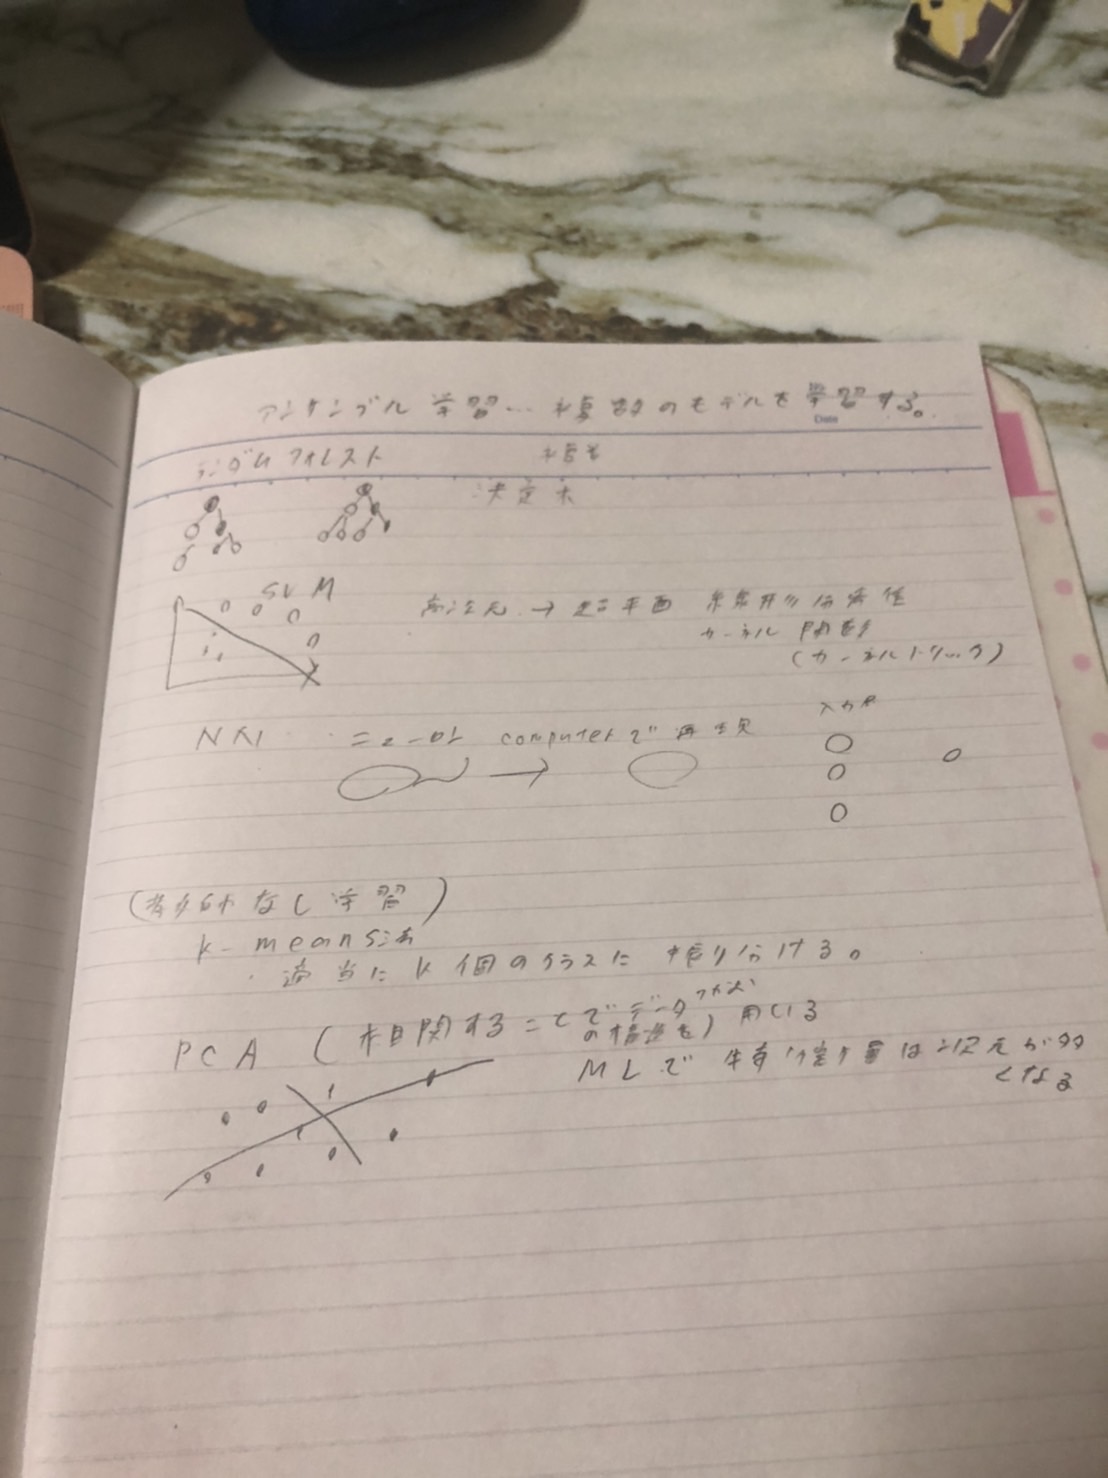 アンサンブル 学習… 複数のモデルを学習する。
Date
ランダム フォレスト 複数
決定木
SVM
高次元 → 超平面 線形分離
カーネル 関数
(カーネルトリック)
入力
NN ニューロン computerで 再現
(教師なし学習)
k-means法
・適当に k個のクラスに 振り分ける。
PCA (相関する データ の構造を) 用いる
MLで 特徴量は次元が多
くなる